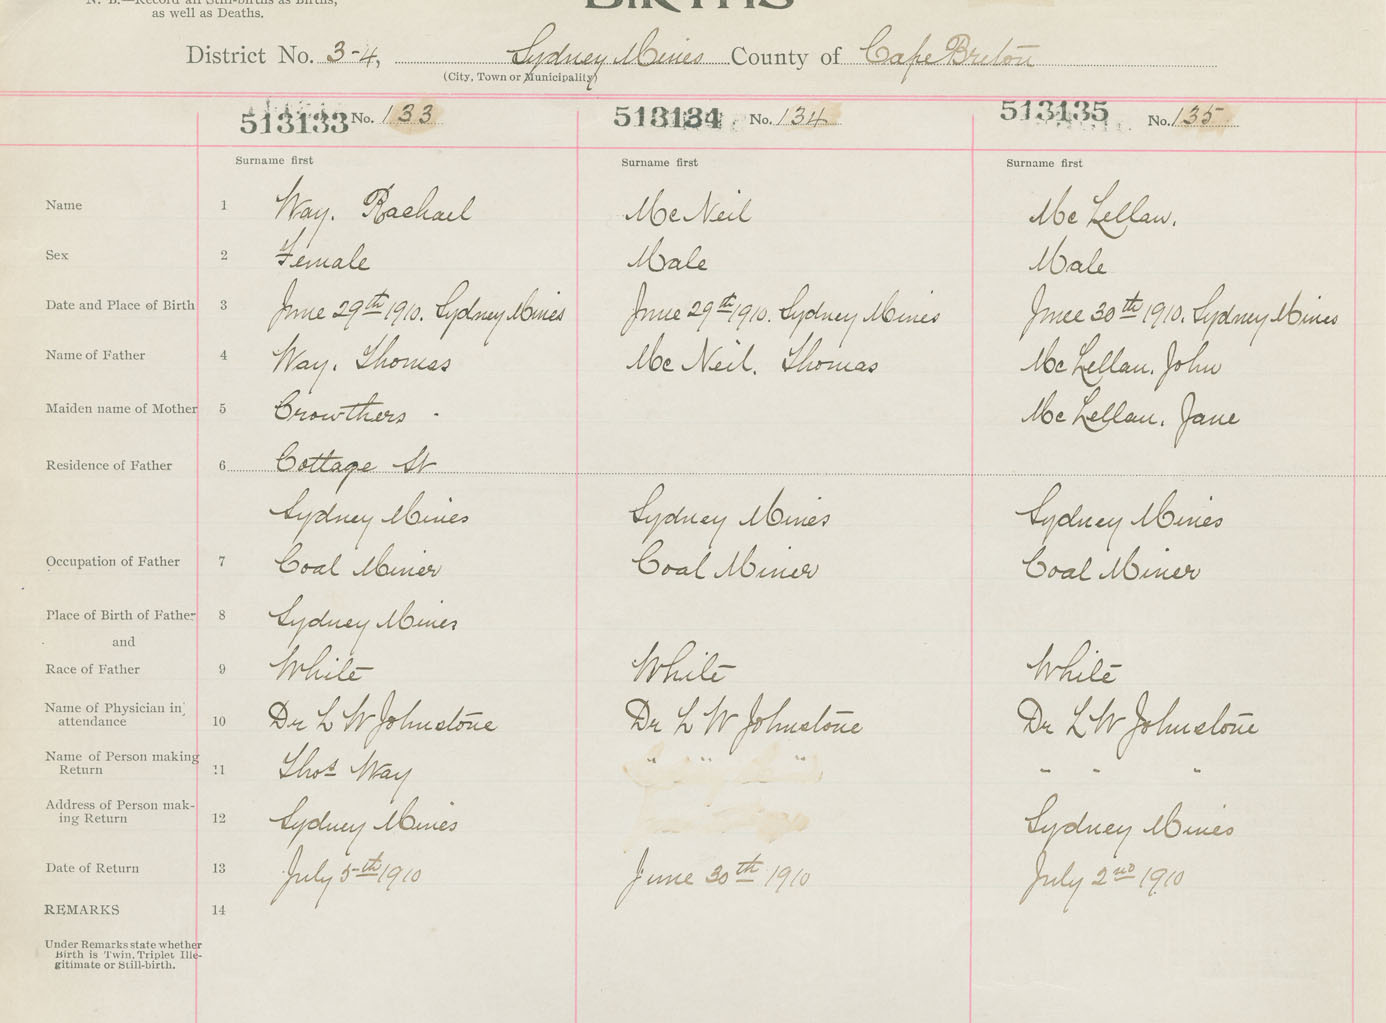 N. B.—Record all Still-births as Births,
as well as Deaths.
BIRTHS
District No. 3-4, Sydney Mines County of Cape Breton
(City, Town or Municipality)
513133 No. 133 513134 No. 134 513135 No. 135
Surname first Surname first Surname first
Name 1 Way. Rachael McNeil McLellan.
Sex 2 Female Male Male
Date and Place of Birth 3 June 29th 1910. Sydney Mines June 29th 1910. Sydney Mines June 30th 1910. Sydney Mines
Name of Father 4 Way. Thomas McNeil. Thomas McLellan. John
Maiden name of Mother 5 Crowthers - McLellan. Jane
Residence of Father 6 Cottage St
Sydney Mines Sydney Mines Sydney Mines
Occupation of Father 7 Coal Miner Coal Miner Coal Miner
Place of Birth of Father 8 Sydney Mines
and
Race of Father 9 White White White
Name of Physician in attendance 10 Dr L W Johnstone Dr L W Johnstone Dr L W Johnstone
Name of Person making Return 11 Thos Way " " " " " "
Address of Person mak-
ing Return 12 Sydney Mines Sydney Mines
Date of Return 13 July 5th 1910 June 30th 1910 July 2nd 1910
REMARKS 14
Under Remarks state whether
Birth is Twin, Triplet Ille-
gitimate or Still-birth.